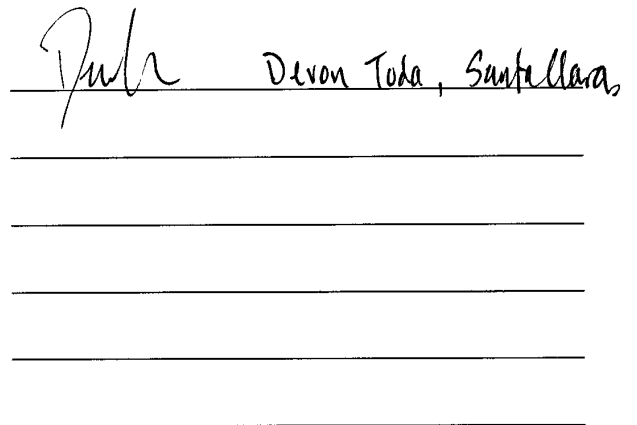 Devon Toda, Santa Clara,